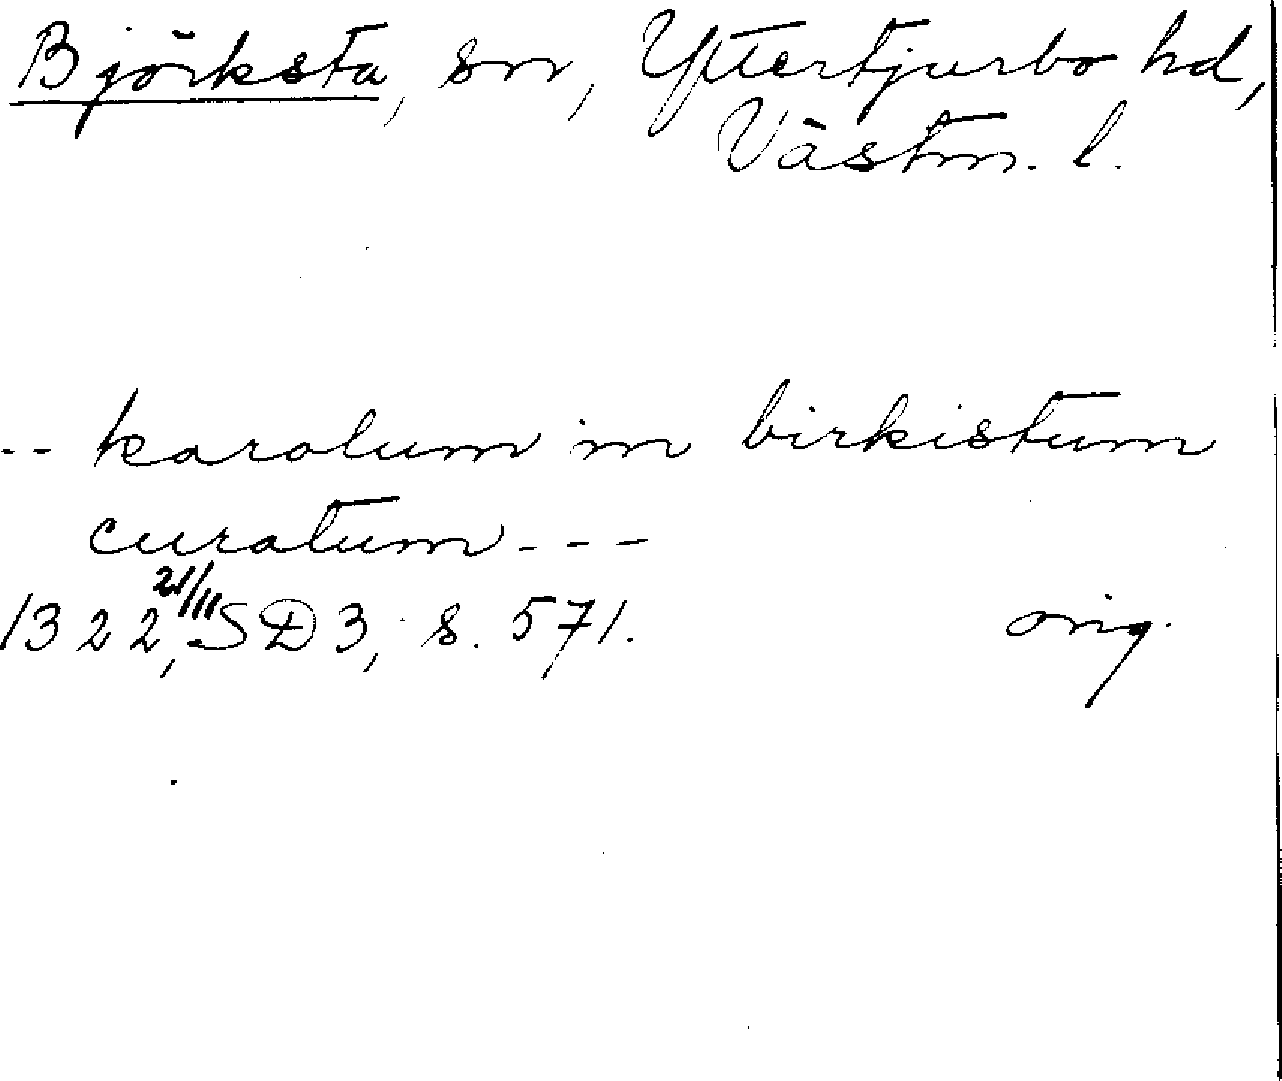 Björksta, sn, Yttertjurbo hd,
Västm. l.
-- karolum in birkistum
curatum - - -
1322 21/11, SD 3, s. 571. orig.